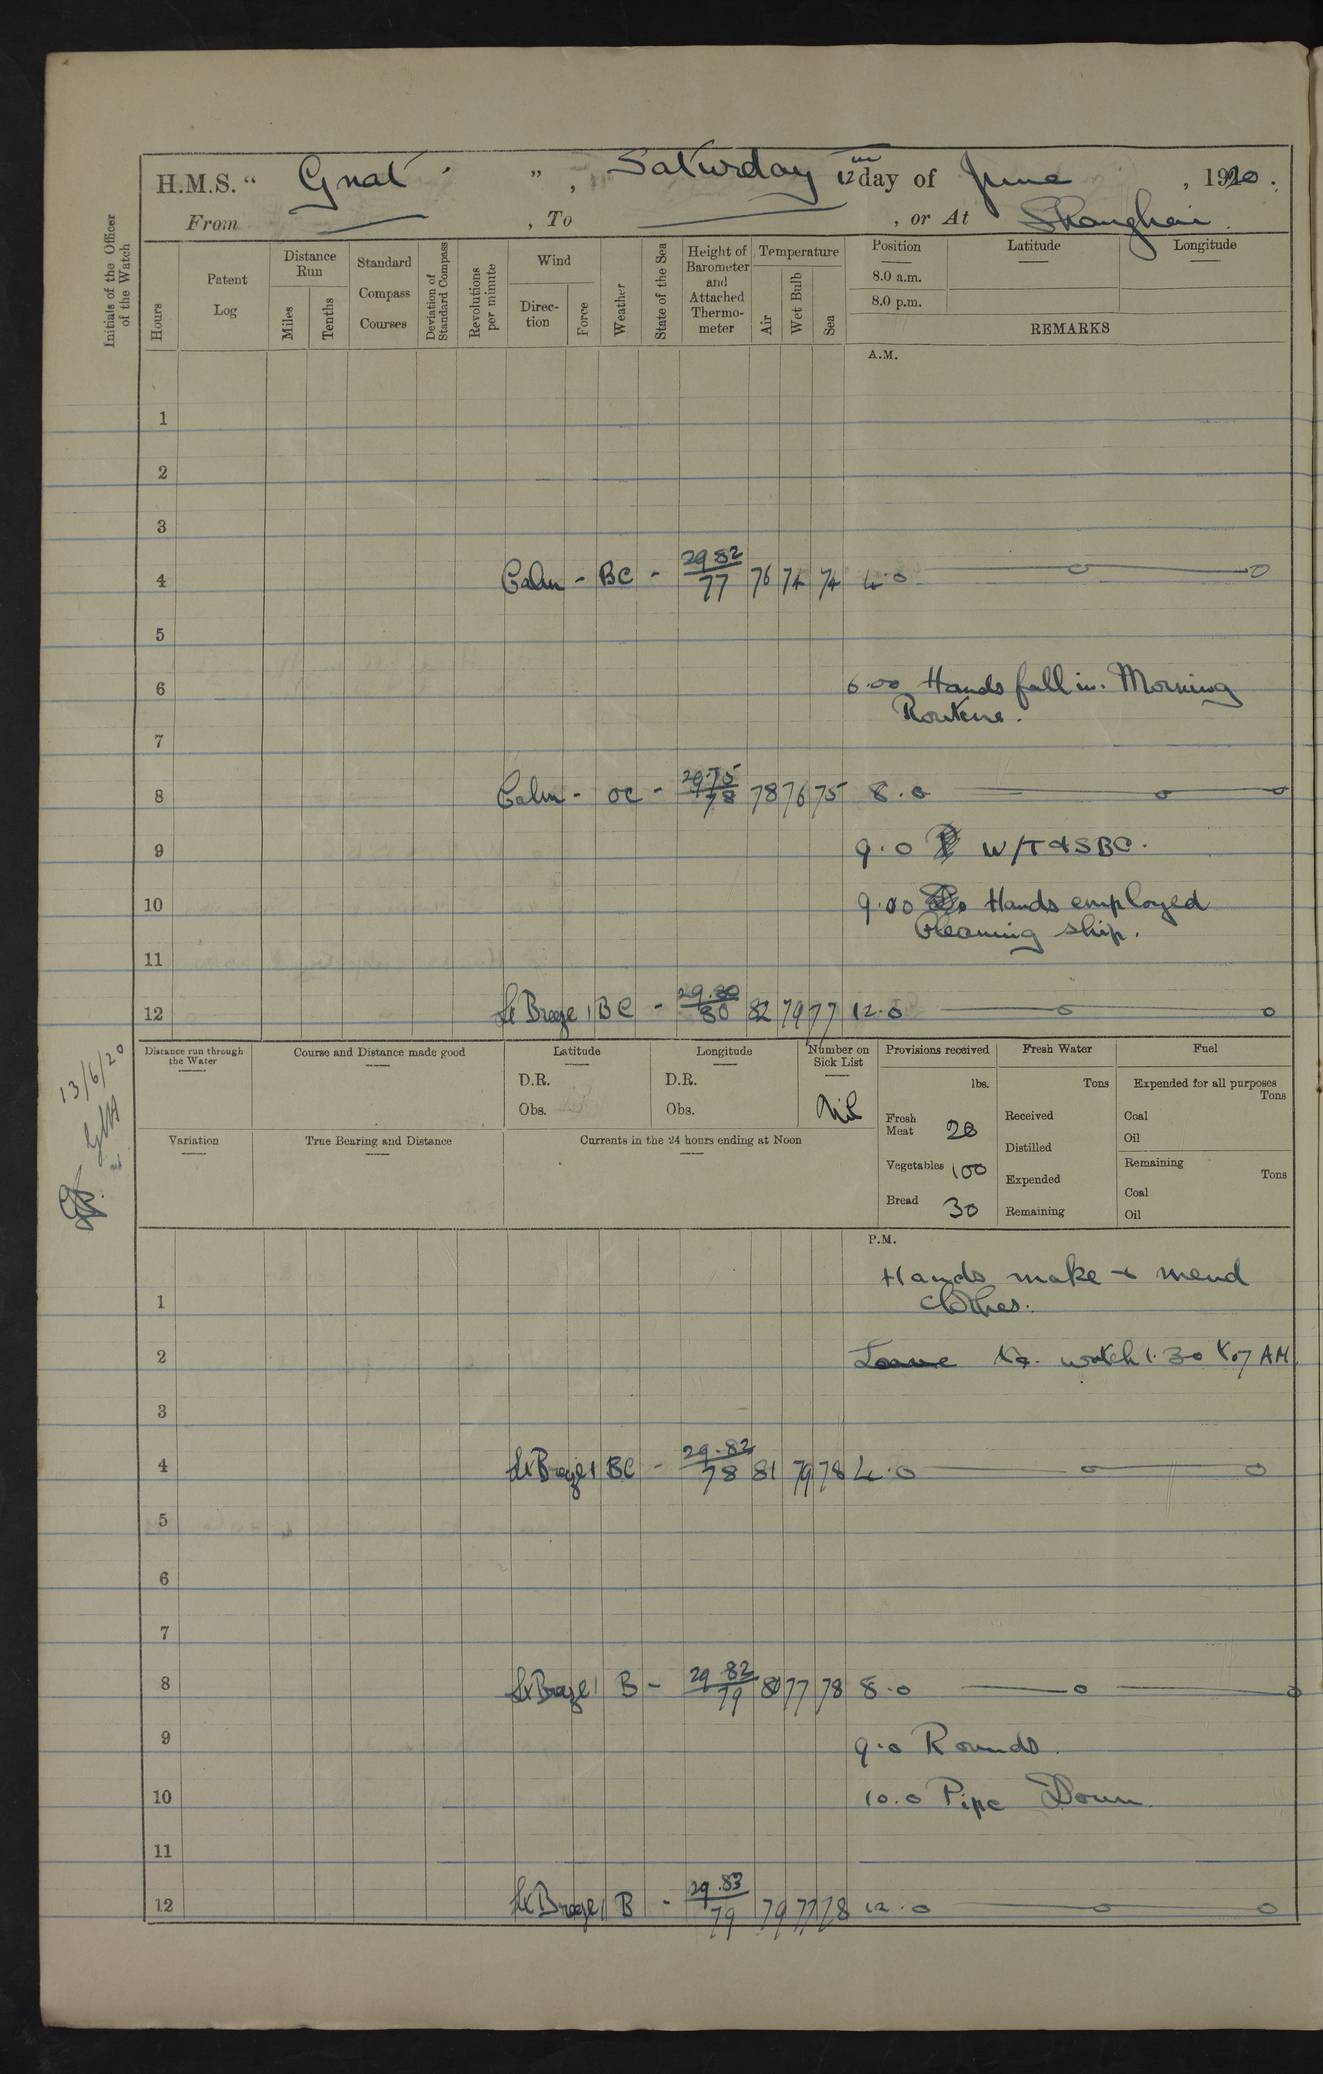 H.M.S. “ Gnat ” , Saturday 12th day of June , 1920 .
From — , To — , or At Shanghai.
Initials of the Officer of the Watch
Hours
Patent Log
Distance Run
Miles
Tenths
Standard Compass Courses
Deviation of Standard Compass
Revolutions per minute
Wind
Direc-tion
Force
Weather
State of the Sea
Height of Barometer and Attached Thermo-meter
Temperature
Air
Wet Bulb
Sea
Position
8.0 a.m.
8.0 p.m.
Latitude
Longitude
REMARKS
A.M.
1
2
3
4 Calm - BC - 29 82 / 77 76 74 74 4.0
5
6 6.00 Hands fall in. Morning
Routine.
7
8 Calm - OC - 29.75 / 78 78 76 75 8.0
9 9.0 W/T & SBC.
10 9.00 Hands employed
Cleaning ship.
11
12 Lt Breeze 1 BC - 29.80 / 80 82 79 77 12.0
Distance run through the Water
Course and Distance made good
Latitude
D.R.
Obs.
Longitude
D.R.
Obs.
Number on Sick List
Nil
Provisions received
lbs.
Fresh Meat 28
Vegetables 100
Bread 30
Fresh Water
Tons
Received
Distilled
Expended
Remaining
Fuel
Expended for all purposes
Tons
Coal
Oil
Remaining
Tons
Coal
Oil
Variation
True Bearing and Distance
Currents in the 24 hours ending at Noon
13/6/20
P.M.
Hands make & mend
1 clothes.
2 Leave to watch 1.30 to 7 AM.
3
4 Lt Breeze 1 BC - 29.82 / 78 81 79 78 4.0
5
6
7
8 Lt Breeze 1 B - 29 82 / 79 80 77 78 8.0
9 9.0 Rounds.
10 10.0 Pipe Down
11
12 Lt Breeze 1 B - 29.83 / 79 79 77 78 12.0